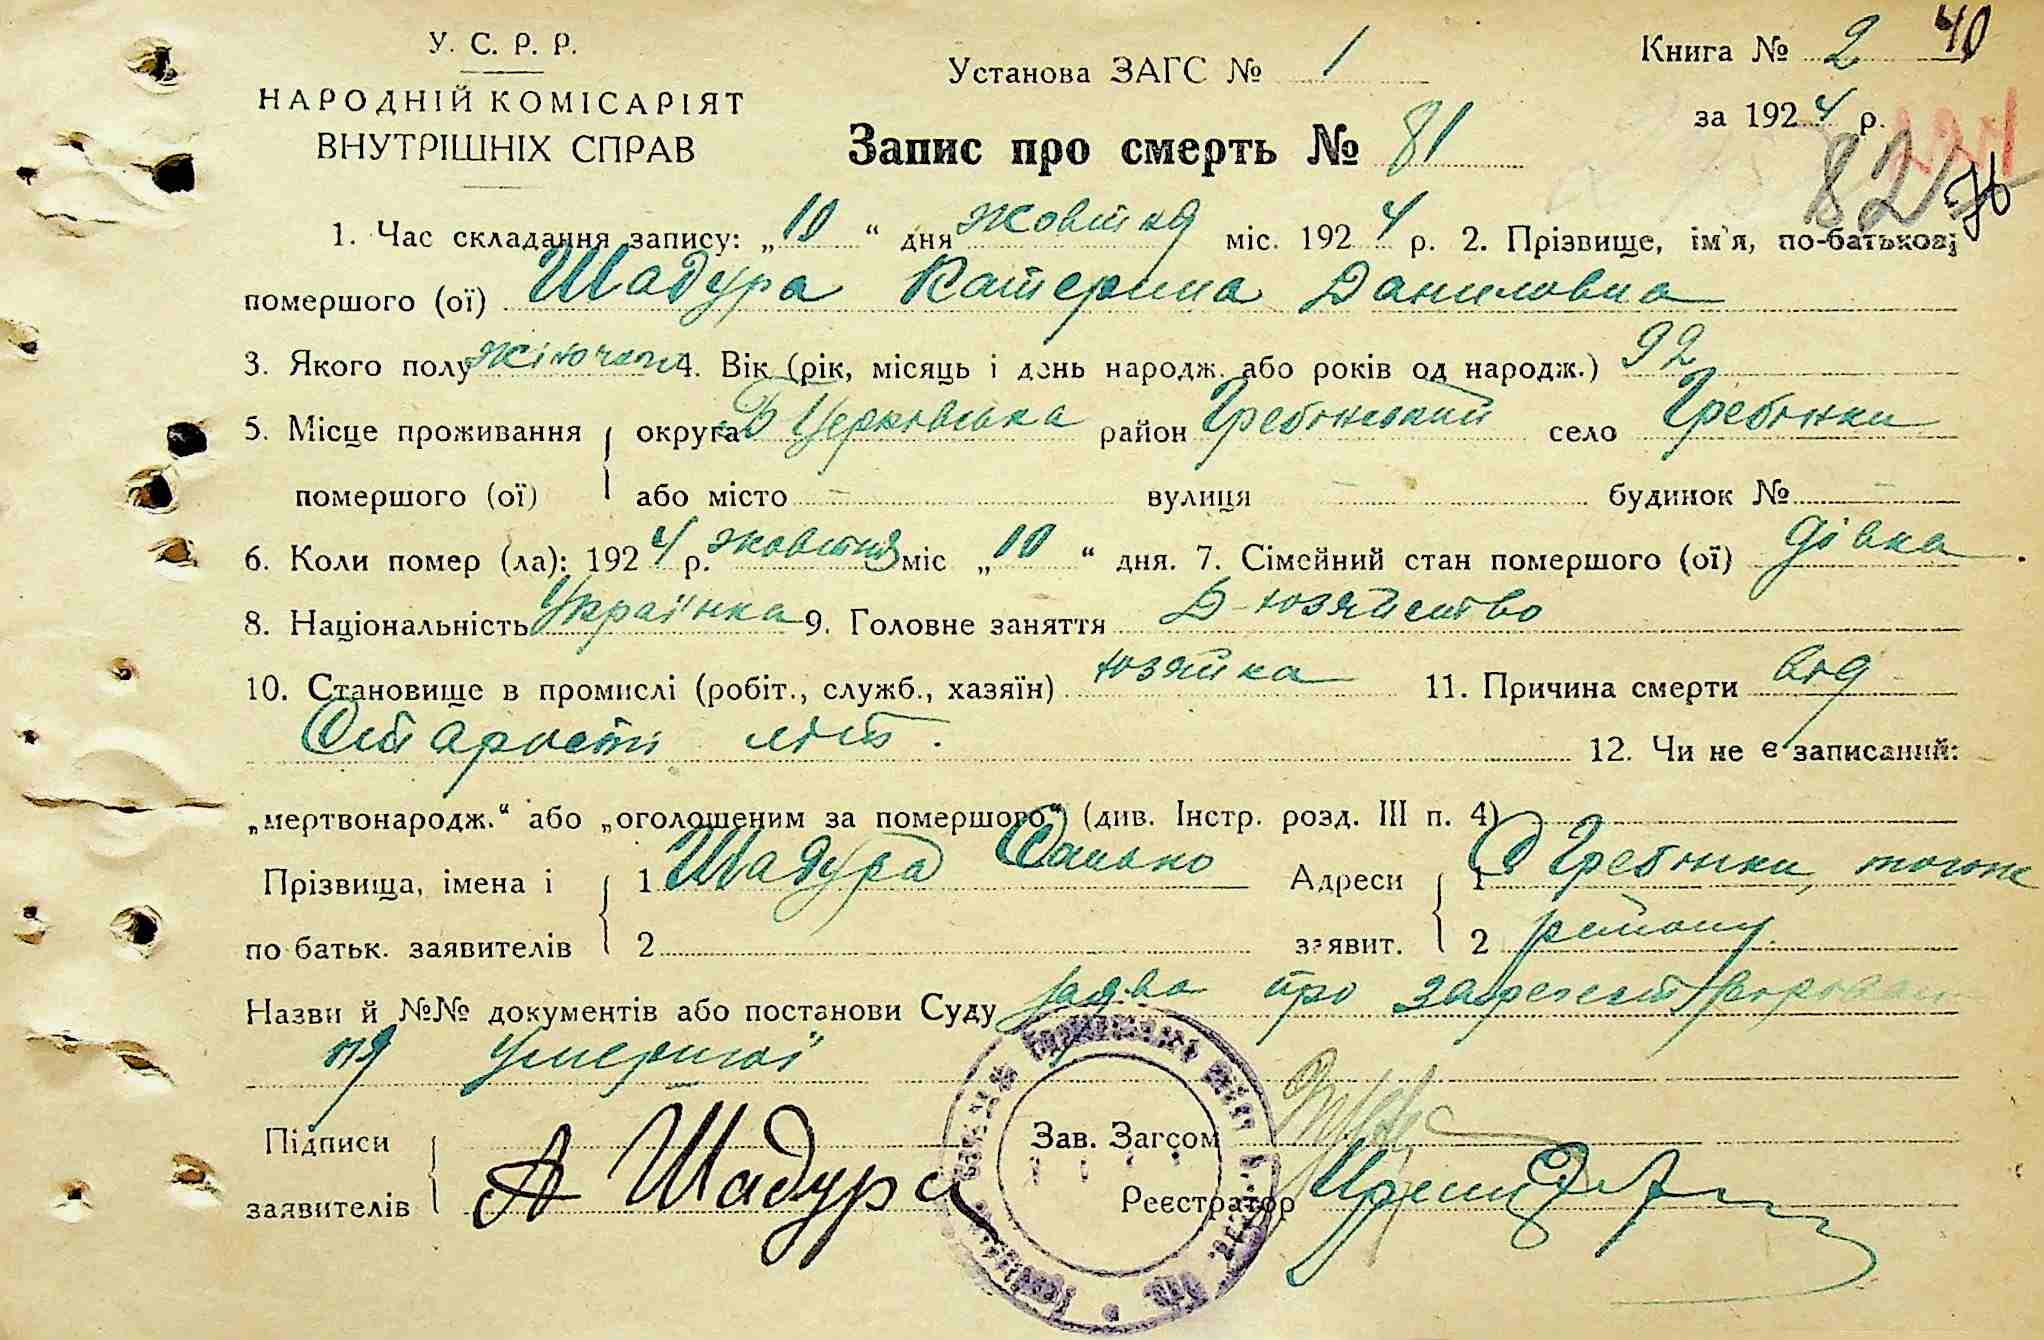 У. С. Р. Р.
НАРОДНІЙ КОМІСАРІЯТ
ВНУТРІШНІХ СПРАВ
Установа ЗАГС № 1
Книга № 2 40
за 1924 р.
Запис про смерть № 81
82
1. Час складання запису: „10“ дня жовтня міс. 1924 р. 2. Прізвище, ім'я, по-батькові
помершого (ої) Шадура Катерина Даниловна
3. Якого полу жіночого 4. Вік (рік, місяць і день народж. або років од народж.) 92
5. Місце проживання округа Б Церковська район Гребінський село Гребінки
помершого (ої) або місто — вулиця — будинок № —
6. Коли помер (ла): 1924 р. жовтня міс „10“ дня. 7. Сімейний стан помершого (ої) дівка
8. Національність Українка 9. Головне заняття Д-хозяйство
10. Становище в промислі (робіт., служб., хазяїн) хозяйка 11. Причина смерти від
Старости літ. 12. Чи не є записаний:
„мертвонародж.“ або „оголошеним за помершого“ (див. Інстр. розд. III п. 4)
Прізвища, імена і 1 Шадура Сашко Адреси 1 С Гребінки, того ж
по батьк. заявителів 2 заявит. 2 району.
Назви й №№ документів або постанови Суду заява про зареєстрірован
ня умершої
Підписи Зав. Загсом
заявителів А Шадура Реєстратор